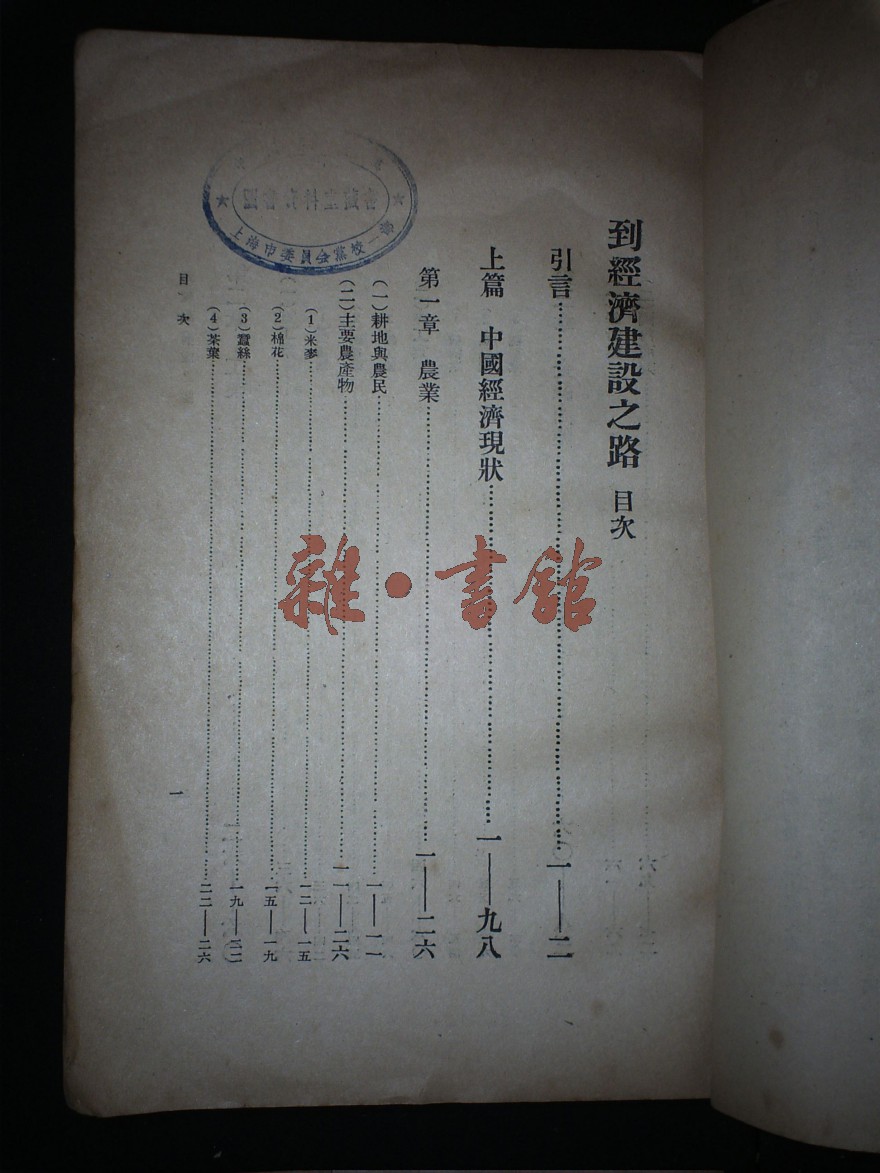 到經濟建設之路 目次
引言……一——二
上篇 中國經濟現狀……一——九八
第一章 農業……一——二六
（一）耕地與農民……一——一一
（二）主要農產物……一一——二六
（1）米麥……一二——一五
（2）棉花……一五——一九
（3）蠶絲……一九——二二
（4）茶葉……二二——二六
目次
一
上海市委員會黨校一部
雜·書館